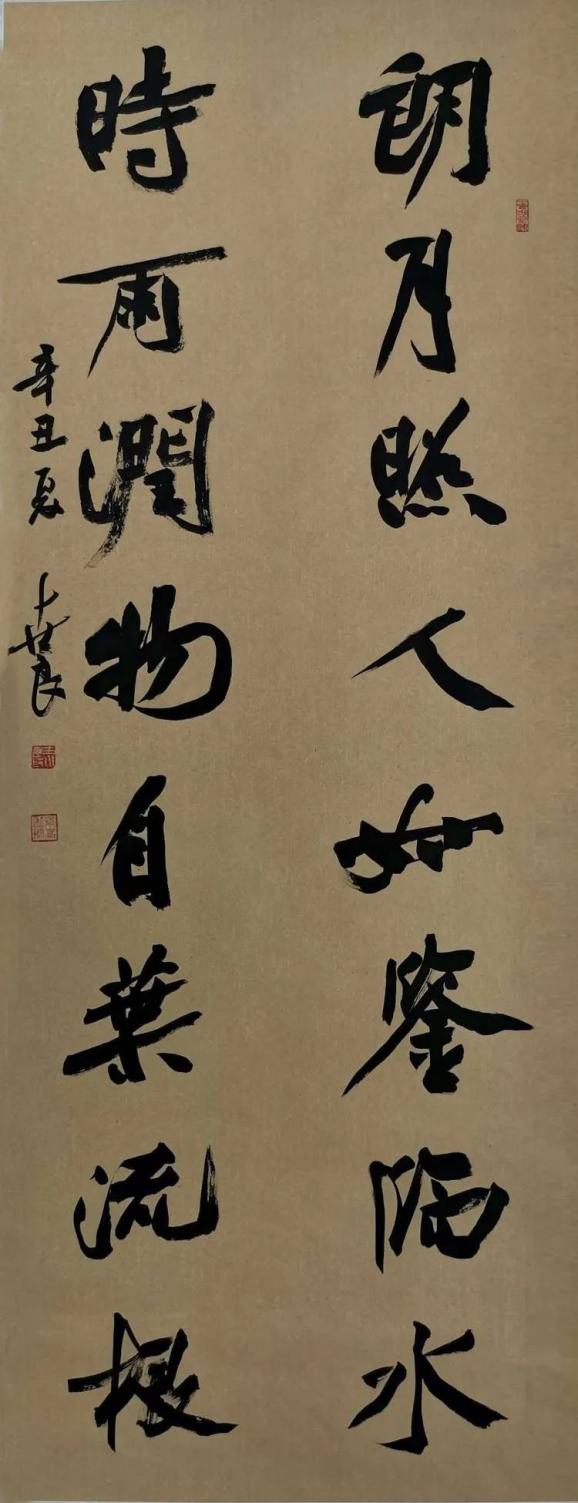 朗月照人如鑒臨水
時雨潤物自葉流根
辛丑夏